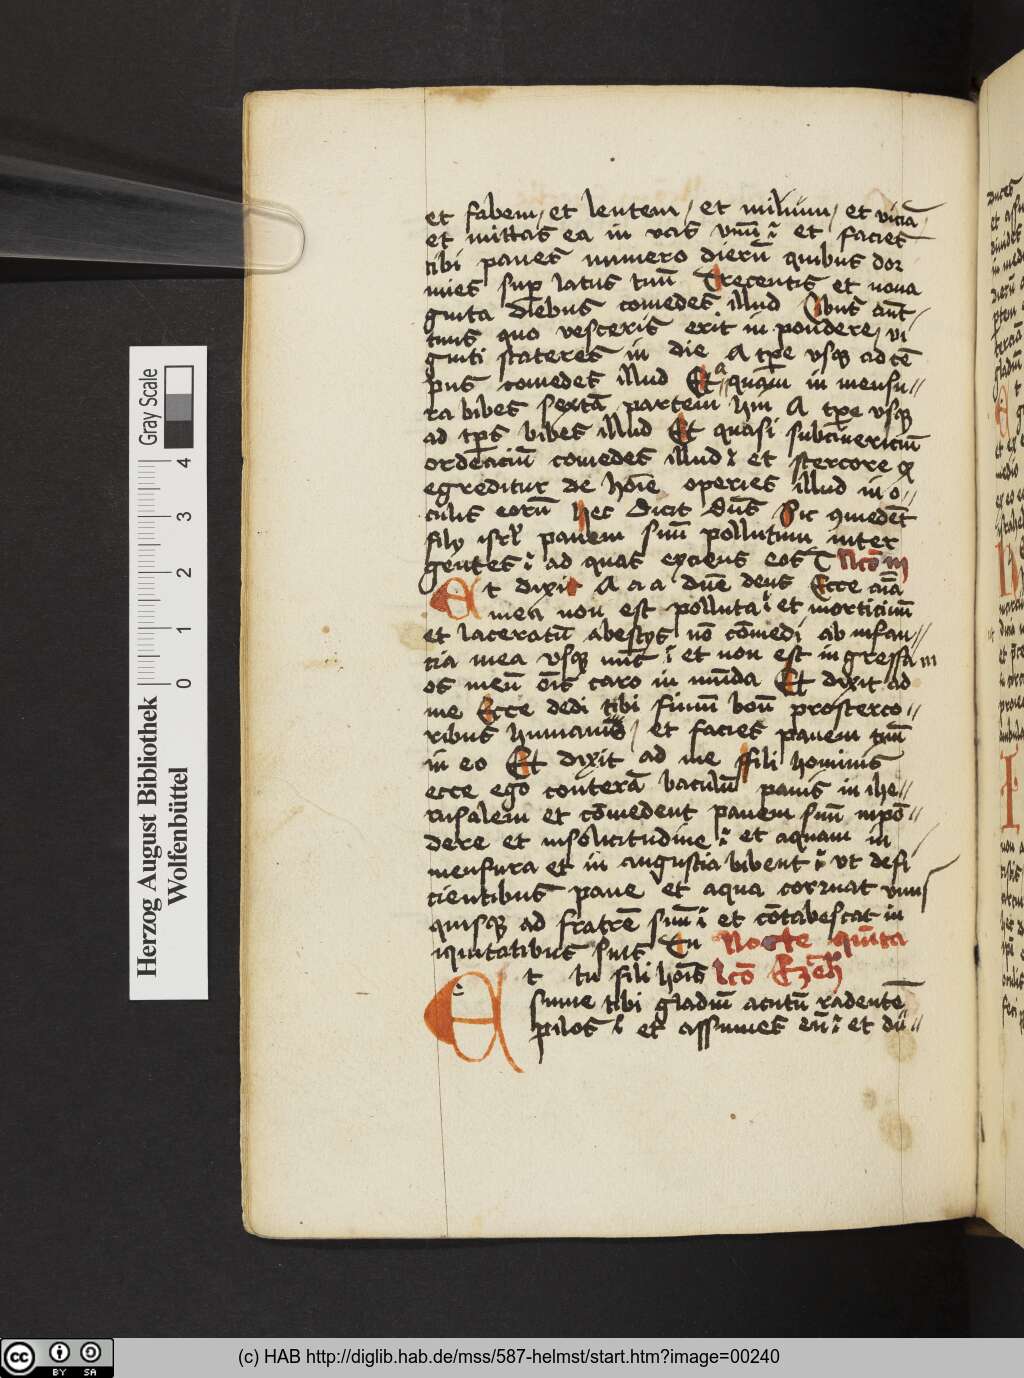 et fabem, et lentem, et milium, et viciā
et mittas ea in vas vnū et facies
tibi panes numero dierū quibus dor
mies sup latus tuū Trecentis et nona
ginta diebus comedes illud Cibus aūt
tuus quo vesceris erit in pondere, vi
ginti stateres in die A tpe vsq ad tē
pus comedes illud Et aquam in mensu
ra bibes sextā partem hin A tpe vsq
ad tps bibes illud Et quasi subcinericiū
ordeaciū comedes illud et stercore q
egreditur de hoīe operies illud in o
culis eorū hec dicit dūs Sic comedēt
filij isrl panem suū pollutum inter
gentes ad quas eyciens eos T Ncō III
Et dixi A a a dūe deus Ecce aīa
mea non est polluta et morticinū
et laceratū abestys nō cōmedi ab infan
cia mea vsq nūc et non est ingressa in
os meū oīs caro in mūda Et dixit ad
me Ecce dedi tibi fimum boū prosterco
ribus humanis, et facies panem tuū
in eo Et dixit ad me ffili hominis
ecce ego conterā baculū panis in ihe
rusalem et cōmedent panem suū inpō
dere et insolicitudine et aquam in
mensura et in angustia bibent vt defi
cientibus pane et aqua corruat vnus
quisq ad fratrē suū et cōtabescat in
iquitatibus suis Tu Nocte quīta
Et tu fili hoīs lcō Ezeh
sume tibi gladiū acutū radentē
pilos et assumes eū et du
Herzog August Bibliothek
Wolfenbüttel
Gray Scale
0 1 2 3 4
cc BY SA
(c) HAB http://diglib.hab.de/mss/587-helmst/start.htm?image=00240